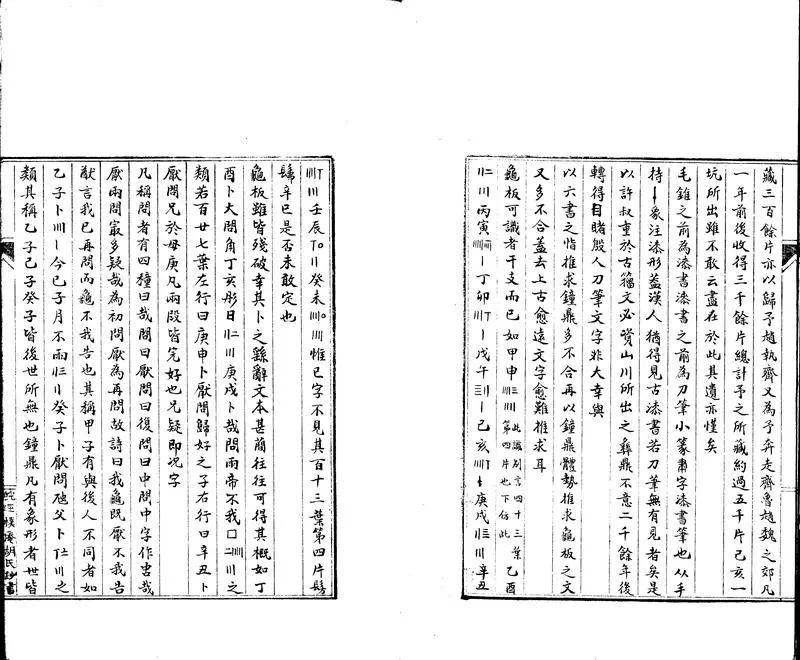 藏三百餘片亦以歸予趙執齋又為予奔走齊魯趙魏之郊凡
一年前後收得三千餘片總計予之所藏約過五千片己亥一
坑所出雖不敢云盡在於此其遺亦僅矣
毛錐之前為漆書漆書之前為刀筆小篆肅字漆書筆也从手
持丨象注漆形蓋漢人猶得見古漆書若刀筆無有見者矣是
以許叔重於古籀文必資山川所出之彝鼎不意二千餘年後
轉得目睹殷人刀筆文字非大幸與
以六書之恉推求鐘鼎多不合再以鐘鼎體勢推求龜板之文
又多不合蓋去上古愈遠文字愈難推求耳
龜板可識者干支而已如甲申 此識別言四十三葉第四片也下仿此 乙酉
丙寅 丁卯 戊午 己亥 庚戌 辛丑
壬辰 癸未 惟巳字不見其百十三葉第四片髣
髴辛巳是否未敢定也
龜板雖皆殘破幸其卜之繇辭文本甚簡往往可得其概如丁
酉卜大問角丁亥彤日 庚戌卜哉問雨帝不我□ 之
類若百廿七葉左行曰庚申卜厭問歸好之子右行曰辛丑卜
厭問兄於母庚凡兩段皆完好也兄疑即況字
凡稱問者有四種曰哉問曰厭問曰復問曰中問中字作𠁩哉
厭兩問最多疑哉為初問厭為再問故詩曰我龜既厭不我告
猷言我已再問而龜不我告也其稱甲子有與後人不同者如
乙子卜 今己子月不雨 癸子卜厭問虺父卜 之
類其稱乙子己子癸子皆後世所無也鐘鼎凡有象形者世皆
胡氏鈔書